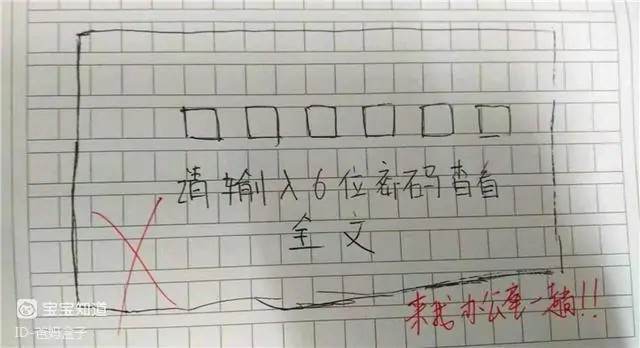 请输入6位密码查看
全文
来我办公室一趟!!
宝宝知道
ID-爸妈盒子